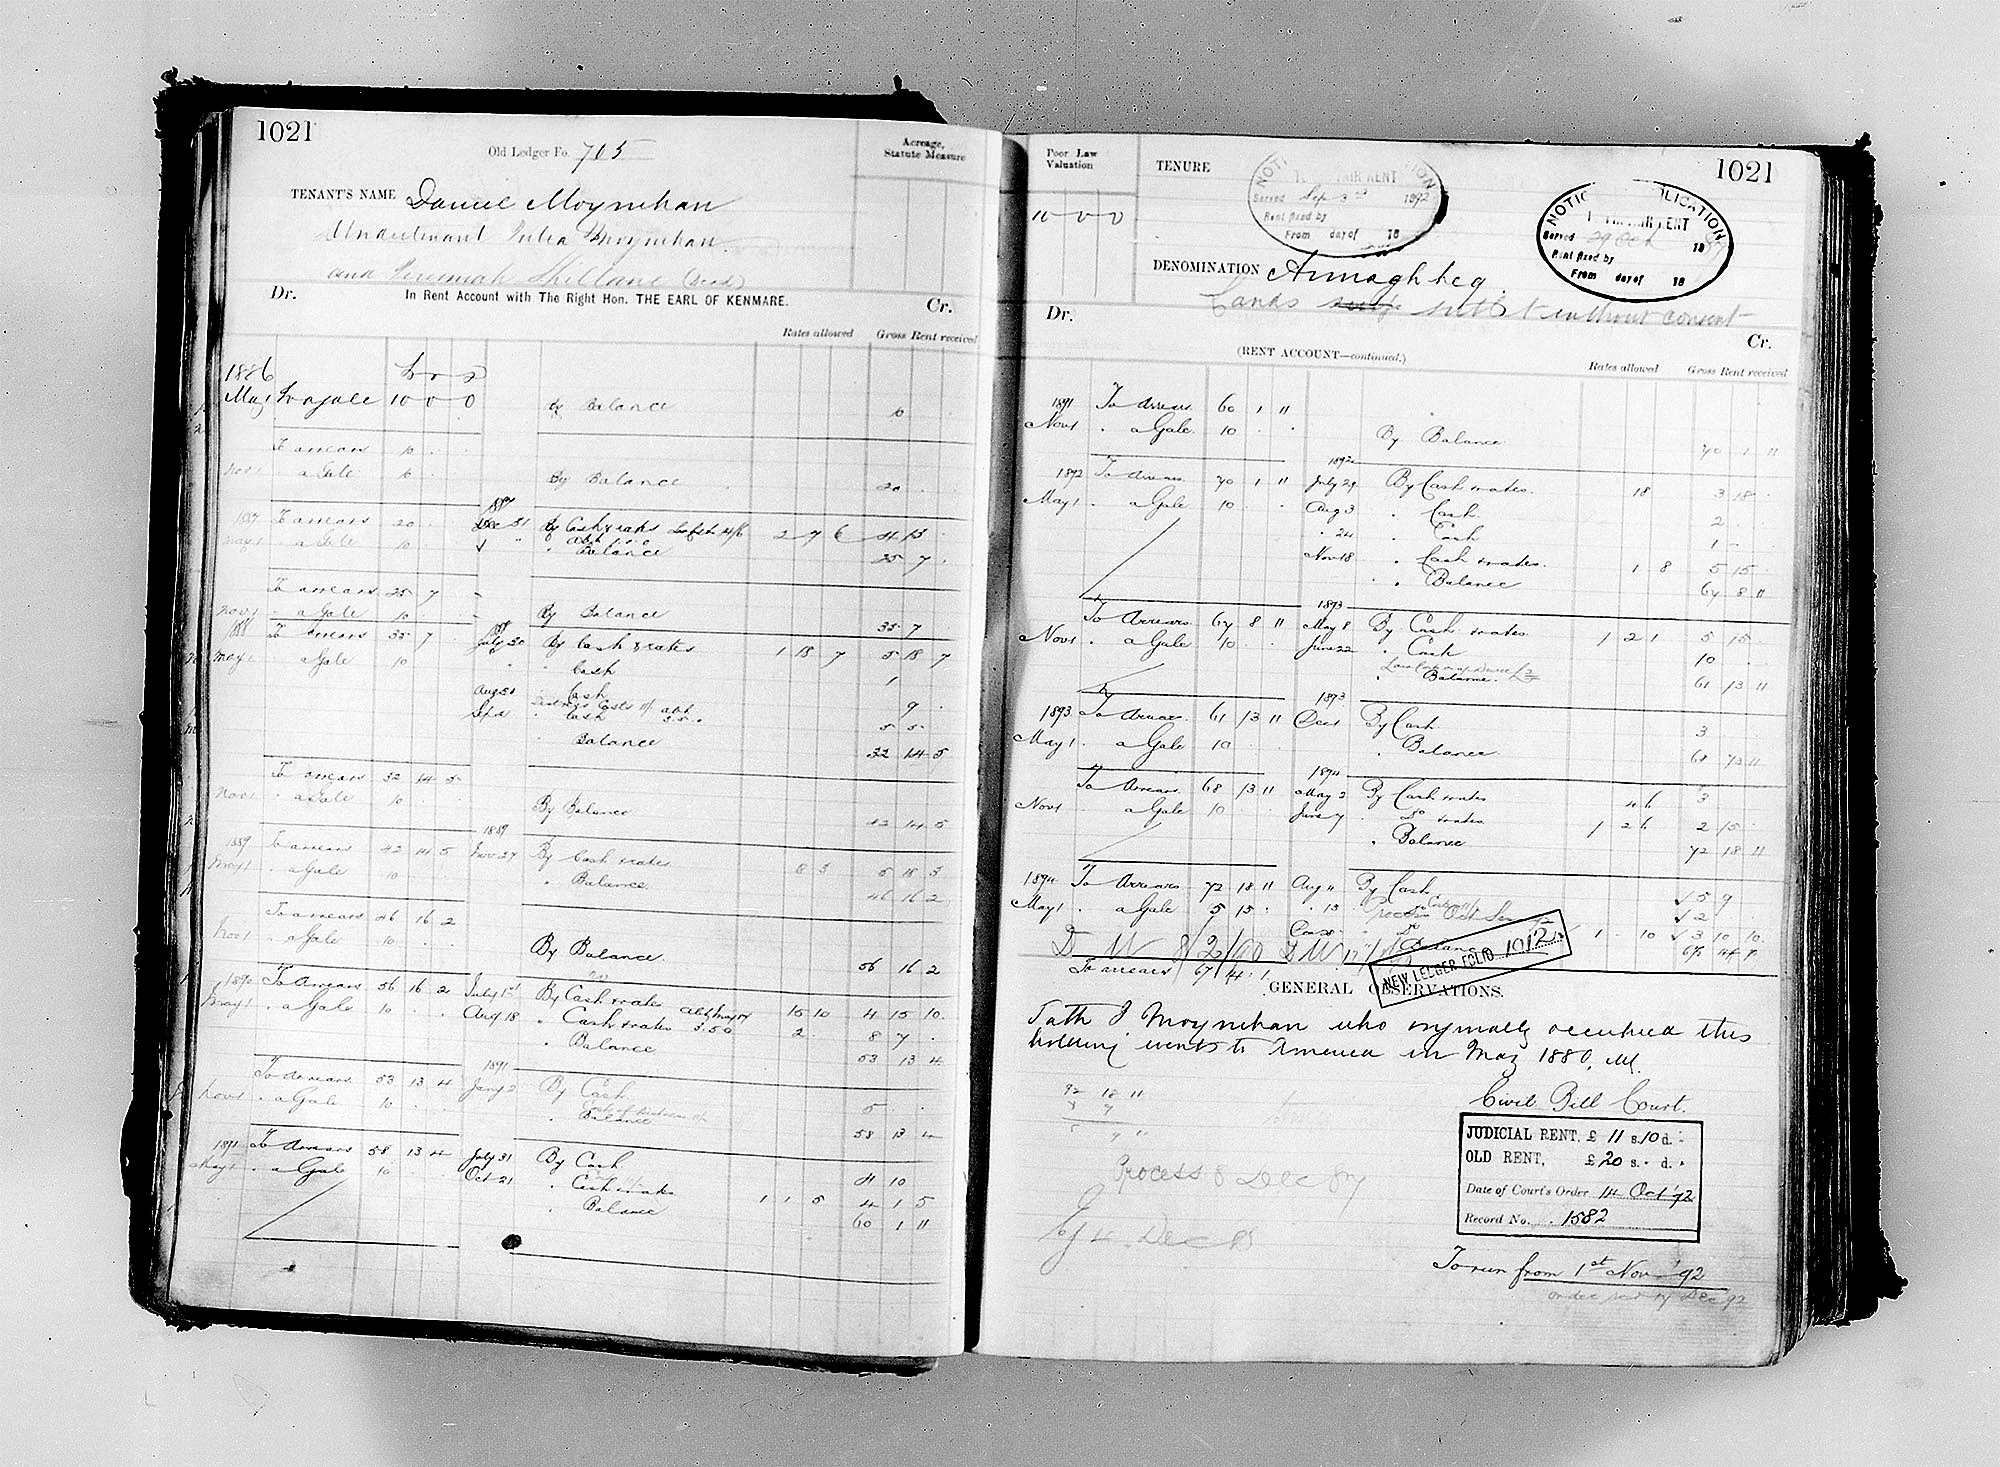 1021
Old Ledger Fo. 705
Acreage, Statute Measure
TENANT'S NAME Daniel Moynihan
Undertenant Julia Moynihan
and Jeremiah Shillane (Dead)
Dr. In Rent Account with The Right Hon. THE EARL OF KENMARE. Cr.
Rates allowed Gross Rent received
1886
May 1 To a Gale 10 0 0 By Balance 10
To arrears 10
Nov 1 a Gale 10 By Balance 20
1887 To arrears 20 Dec 31 By Cash & rates 2 7 6 4 13
May 1 a Gale 10 Balance 25 7
To arrears 25 7
Nov 1 a Gale 10 By Balance 35 7
1888 To arrears 35 7 July 30 By Cash & rates 1 18 7 5 18 7
May 1 a Gale 10 Cash 1
Aug 31 Cash 9
Sep 21 Cash 5 5
Balance 32 14 5
To arrears 32 14 5
Nov 1 a Gale 10 By Balance 42 14 5
1889
1889 To arrears 42 14 5 Nov 27 By Cash & rates 18 3 5 18 3
May 1 a Gale 10 Balance 46 16 2
To arrears 46 16 2
Nov 1 a Gale 10 By Balance 56 16 2
1890 To Arrears 56 16 2 July 1st By Cash & rates 15 10 4 15 10
May 1 a Gale 10 Aug 18 Cash & rates 2 8 7
Balance 53 13 4
1891
To Arrears 53 13 4 Jany 2 By Cash 5
Nov 1 a Gale 10 Balance 58 13 4
1891 To Arrears 58 13 4 July 31 By Cash 4 10
May 1 a Gale 10 Oct 21 Cash & rates 1 1 5 4 1 5
Balance 60 1 11
Poor Law Valuation
TENURE
1021
10 0 0
NOTIC
FAIR RENT
Served Sep 3rd 1892
Rent fixed by
From day of 18
NOTIC LICATION
FAIR RENT
Served 29 Oct 18
Rent fixed by
From day of 18
DENOMINATION Armagh beg
Lands sublet without consent
Dr. (RENT ACCOUNT—continued.) Cr.
Rates allowed Gross Rent received
1891 To Arrears 60 1 11
Nov 1 a Gale 10 By Balance 70 1 11
1892
1892 To Arrears 70 1 11 July 29 By Cash & rates 18 3 18
May 1 a Gale 10 Aug 3 Cash 2
24 Cash 1
Nov 18 Cash & rates 1 8 5 15
Balance 67 8 11
1893
To Arrears 67 8 11 May 8 By Cash & rates 1 2 1 5 15
Nov 1 a Gale 10 June 22 Cash 10
Balance 61 13 11
1893
1893 To Arrears 61 13 11 Dec 1 By Cash 3
May 1 a Gale 10 Balance 68 13 11
1894
To Arrears 68 13 11 May 3 By Cash & rates 4 6 3
Nov 1 a Gale 10 June 7 Do rates 1 2 6 2 15
Balance 72 18 11
1894 To Arrears 72 18 11 Aug 11 By Cash 5 9
May 1 a Gale 5 15 13 2
Do 1 10 3 10 10
D W 8/2/00 Balance
To arrears 67 14 1
NEW LEDGER FOLIO 1012
GENERAL OBSERVATIONS.
Path J Moynihan who originally occupied this
holding went to America in May 1880,
92 18 11
Civil Bill Court.
JUDICIAL RENT, £ 11 s. 10 d. -
OLD RENT, £ 20 s. - d. -
Date of Court's Order 14 Oct '92
Record No. 1582
Process 8 Dec 87
To run from 1st Nov '92